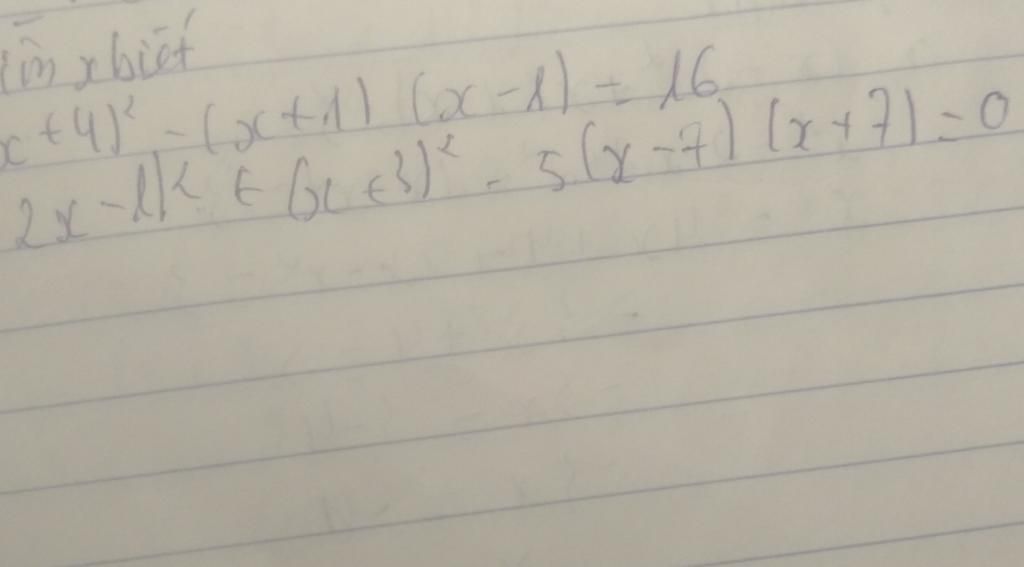 ìm x biết
x+4)² - (x+1) (x-1) = 16
2x-1)² + (x+3)² - 5(x-7) (x+7) = 0